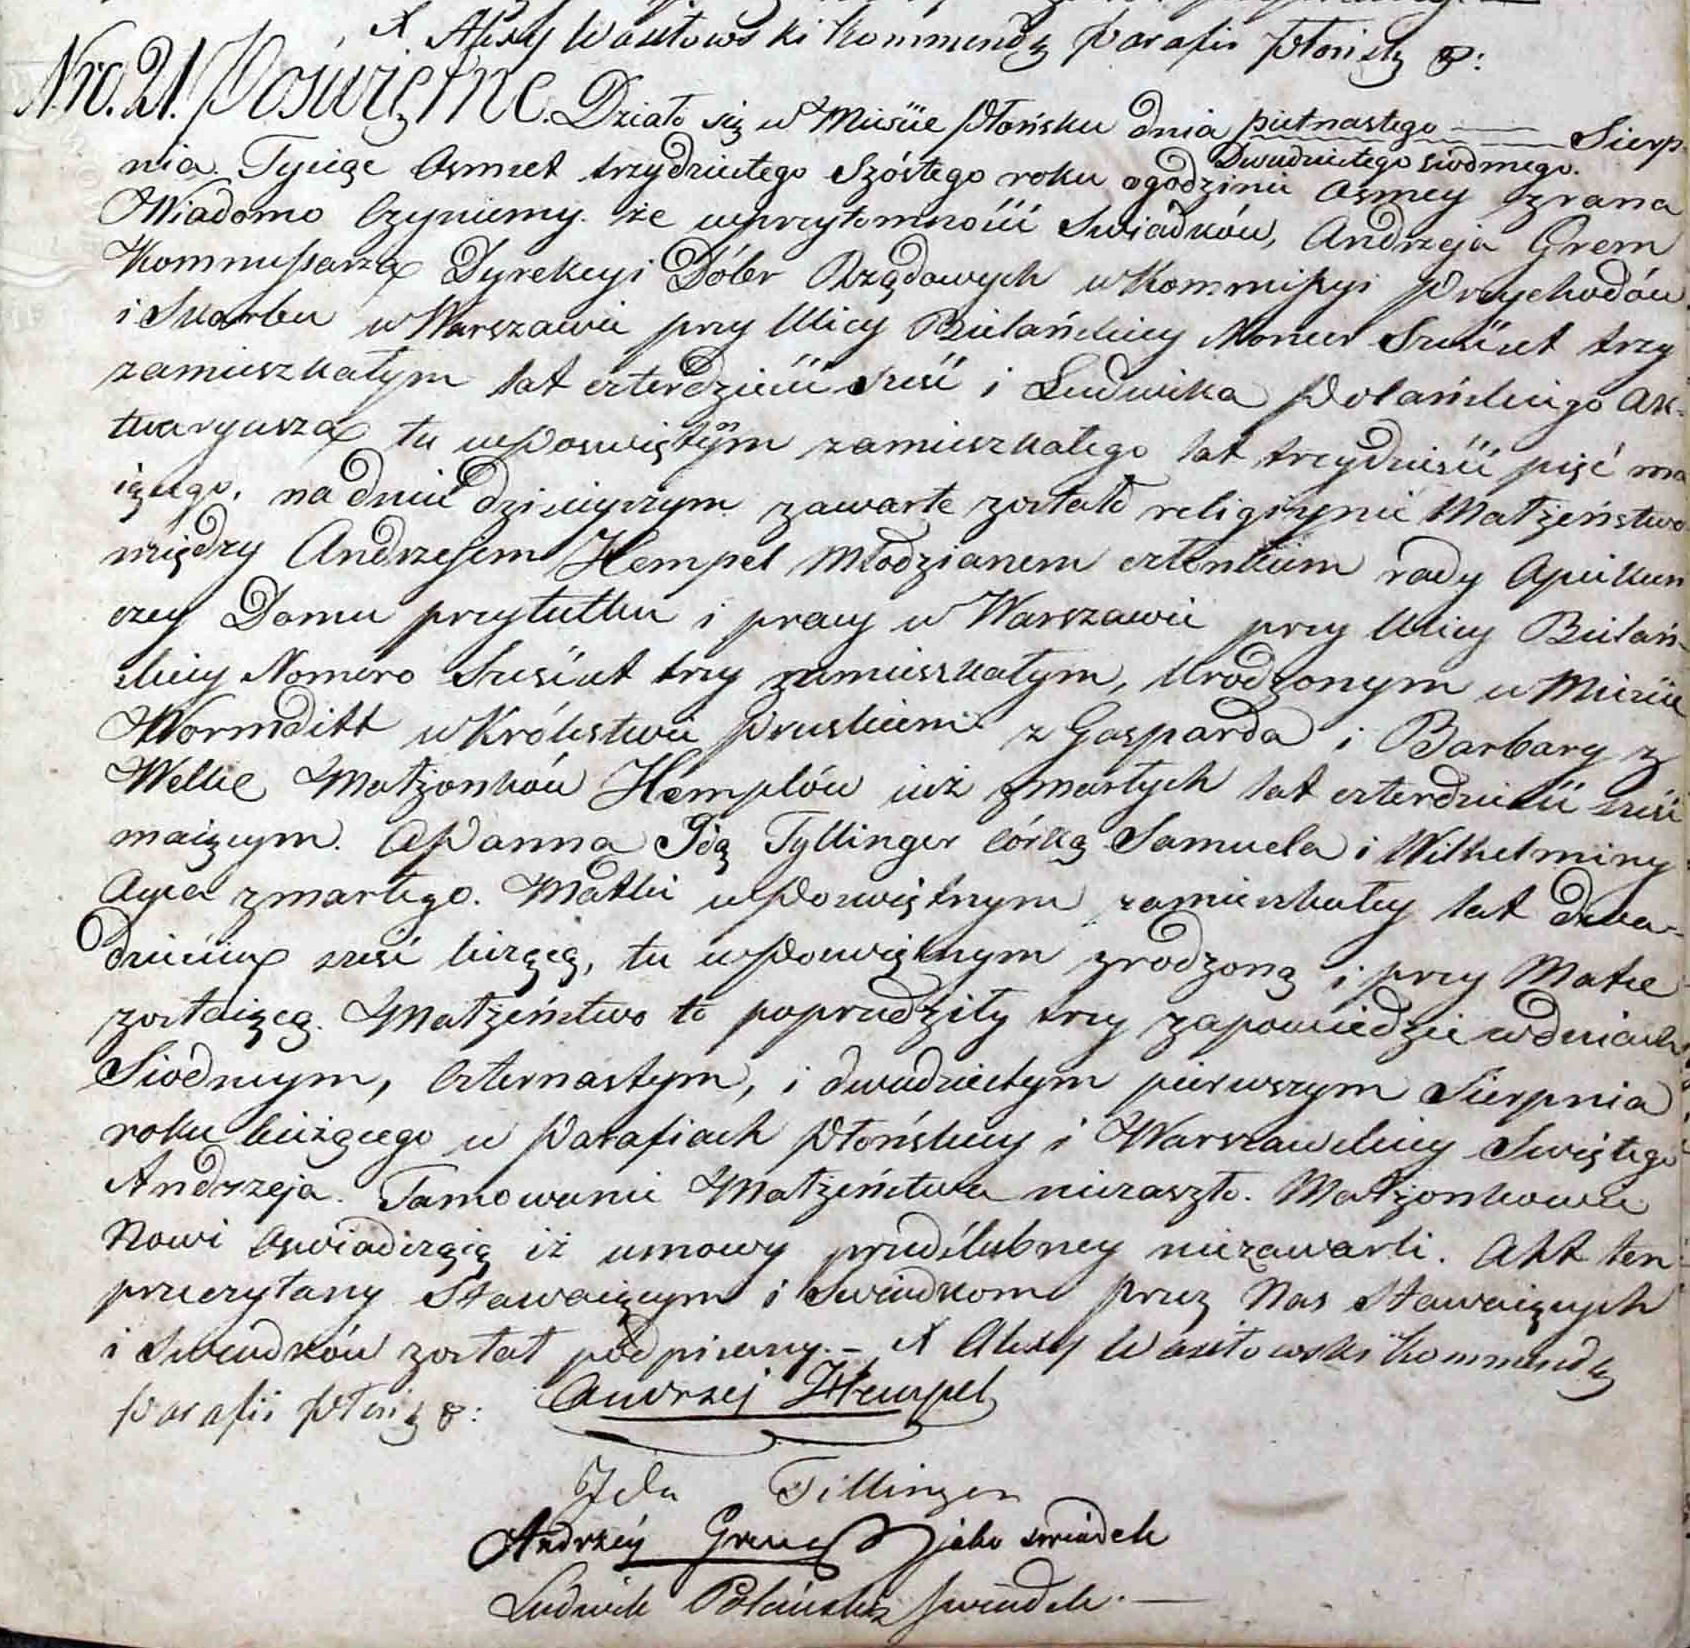 X Alexy Wasiłowski Kommendz Parafii Płońsk
Nro. 21. Poświętne. Działo się w Mieście Płońsku dnia piętnastego — Sierp
Dwudziestego siodmego.
nia. Tysiąc Osmset trzydziestego Szóstego roku ogodzinie Osmey zrana
Wiadomo Czyniemy że wprzytomności Swiadków, Andrzeja Grem
Kommissarza Dyrekcyi Dóbr Rządowych w Kommissyi Przychodów
i Skarbu w Warszawie przy Ulicy Bielańskiey Numer Sześćset trzy
zamieszkałym lat czterdzieści sześć i Ludwika Polańskiego Ak-
twaryusza tu w Poswiętnym zamieszkałego lat trzydzieści pięć ma
iącego, na dniu dzisieyszym zawarte zostało religiynie Małżeństwo
między Andrzejem Hempel Młodzianem członkiem rady Opiekun
czey Domu przytułku i pracy w Warszawie przy Ulicy Bielań-
skiey Nomero Sześćset trzy zamieszkałym, Urodzonym w Mieście
Wormditt w Królestwie Pruskiem z Gasparda i Barbary z
Welke Małżonków Hemplów iuż zmarłych lat czterdzieści sześć
maiącym. A Panną Idą Tyllinger Córką Samuela i Wilhelminy
Oyca zmarłego. Matki w Poswiętnym zamieszkałey lat dwa-
dzieścia sześć liczącą, tu w Poswiętnym zrodzoną i przy Matce
zostaiącą. Małżeństwo to poprzedziły trzy zapowiedzie w dniach
Siodmym, Czternastym, i dwudziestym pierwszym Sierpnia
roku bieżącego w Parafiach Płońskiey i Warszawskiey Swiętego
Andrzeja. Tamowanie Małżeństwa niezaszło. Małżonkowie
Nowi Oswiadczaią iż umowy przedślubney niezawarli. Akt ten
przeczytany Stawaiącym i Swiadkom przez Nas Stawaiących
i Swiadków został podpisany. – X Alexy Wasiłowski Kommendz
Parafii Płońsk
Andrzej Hempel
Ida Tillinger
Andrzéy Grem jako swiadek
Ludwik Polański swiadek. —